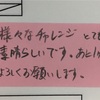 様々なチャレンジ とて
素晴らしいです。あと1ヶ
よろしくお願いします。